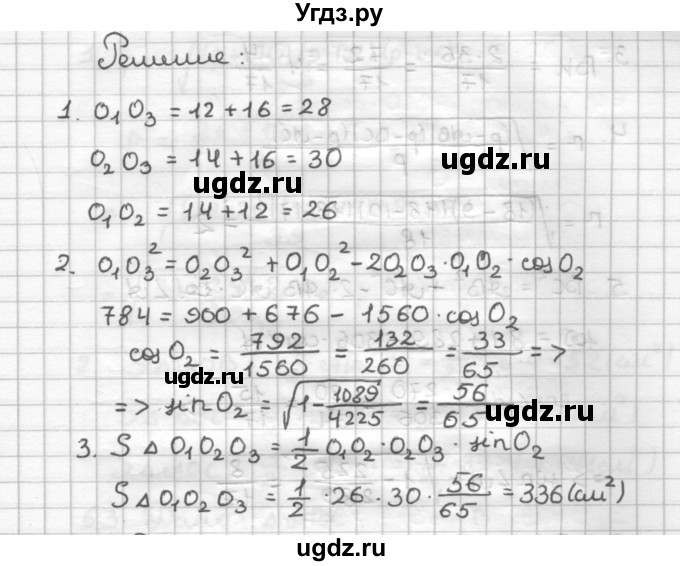 Угдз.ру
Решение:
1. O₁O₃ = 12 + 16 = 28
O₂O₃ = 14 + 16 = 30
ugdz.ru ugdz.ru
O₁O₂ = 14 + 12 = 26
2. O₁O₃² = O₂O₃² + O₁O₂² - 2O₂O₃ · O₁O₂ · cosO₂
784 = 900 + 676 - 1560 · cosO₂
cosO₂ = 792/1560 = 132/260 = 33/65 =>
ugdz.ru
=> sinO₂ = √(1 - 1089/4225) = 56/65
ugdz.ru
3. S△O₁O₂O₃ = 1/2 O₁O₂ · O₂O₃ · sinO₂
S△O₁O₂O₃ = 1/2 · 26 · 30 · 56/65 = 336 (см²)
ugdz.ru